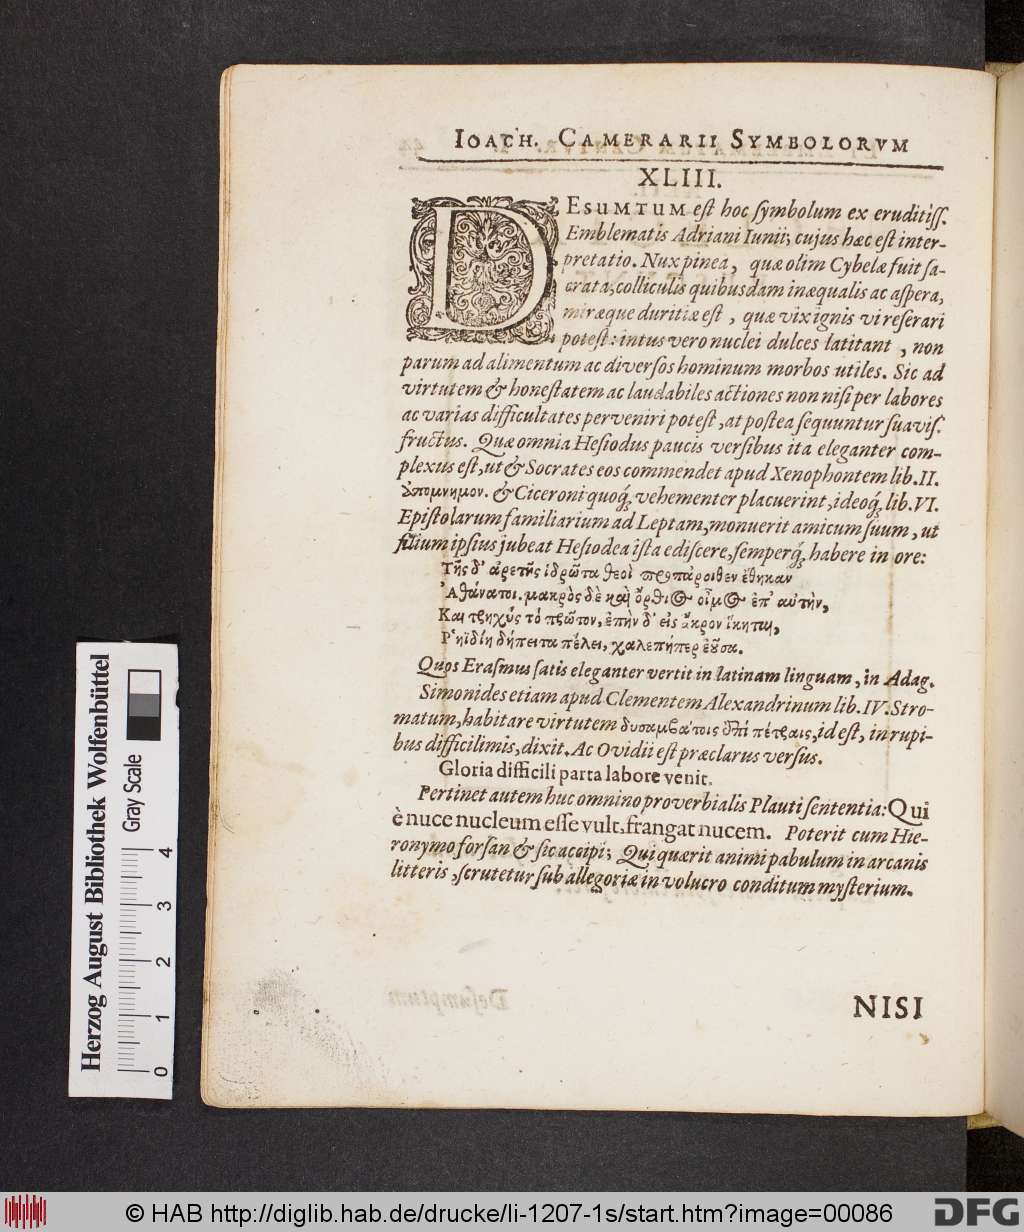 IOACH. CAMERARII SYMBOLORVM
XLIII.
DESUMTUM est hoc symbolum ex eruditiss.
Emblematis Adriani Iunii; cujus hæc est inter-
pretatio. Nux pinea, quæ olim Cybelæ fuit sa-
crata, colliculis quibusdam inæqualis ac aspera,
miræque duritiæ est, quæ vix ignis vi reserari
potest: intus vero nuclei dulces latitant, non
parum ad alimentum ac diversos hominum morbos utiles. Sic ad
virtutem & honestatem ac laudabiles actiones non nisi per labores
ac varias difficultates perveniri potest, at postea sequuntur suavis.
fructus. Quæ omnia Hesiodus paucis versibus ita eleganter com-
plexus est, ut & Socrates eos commendet apud Xenophontem lib. II.
ὑπομνημον. & Ciceroni quoq́; vehementer placuerint, ideoq́; lib. VI.
Epistolarum familiarium ad Leptam, monuerit amicum suum, ut
filium ipsius jubeat Hesiodea ista ediscere, semperq́; habere in ore:
Τῆς δ' ἀρετῆς ἱδρῶτα θεοὶ προπάροιθεν ἔθηκαν
Ἀθάνατοι. μακρὸς δὲ καὶ ὄρθιος οἶμος ἐπ' αὐτὴν,
Και τρηχὺς τὸ πρῶτον, ἐπὴν δ' εἰς ἄκρον ἵκηται,
Ρηϊδίη δήπειτα πέλει, χαλεπήπερ ἐοῦσα.
Quos Erasmus satis eleganter vertit in latinam linguam, in Adag.
Simonides etiam apud Clementem Alexandrinum lib. IV. Stro-
matum, habitare virtutem δυσαμβάτοις ἐπὶ πέτραις, id est, in rupi-
bus difficilimis, dixit. Ac Ovidii est præclarus versus.
Gloria difficili parta labore venit.
Pertinet autem huc omnino proverbialis Plauti sententia: Qui
è nuce nucleum esse vult, frangat nucem. Poterit cum Hie-
ronymo forsan & sic accipi; Qui quærit animi pabulum in arcanis
litteris, scrutetur sub allegoriæ involucro conditum mysterium.
NISI
Herzog August Bibliothek Wolfenbüttel
Gray Scale
0 1 2 3 4
© HAB http://diglib.hab.de/drucke/li-1207-1s/start.htm?image=00086
DFG